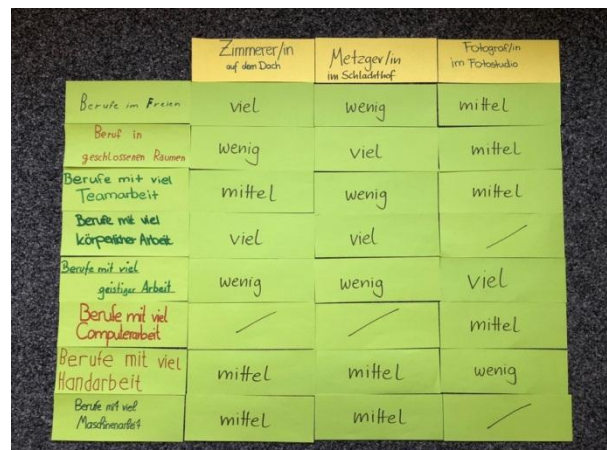 Zimmerer/in
auf dem Dach
Metzger/in
im Schlachthof
Fotograf/in
im Fotostudio
Berufe im Freien
viel
wenig
mittel
Beruf in
geschlossenen Räumen
wenig
viel
mittel
Berufe mit viel
Teamarbeit
mittel
wenig
mittel
Berufe mit viel
körperlicher Arbeit
viel
viel
/
Berufe mit viel
geistiger Arbeit
wenig
wenig
viel
Berufe mit viel
Computerarbeit
/
/
mittel
Berufe mit viel
Handarbeit
mittel
mittel
wenig
Berufe mit viel
Maschinenarbeit
mittel
mittel
/